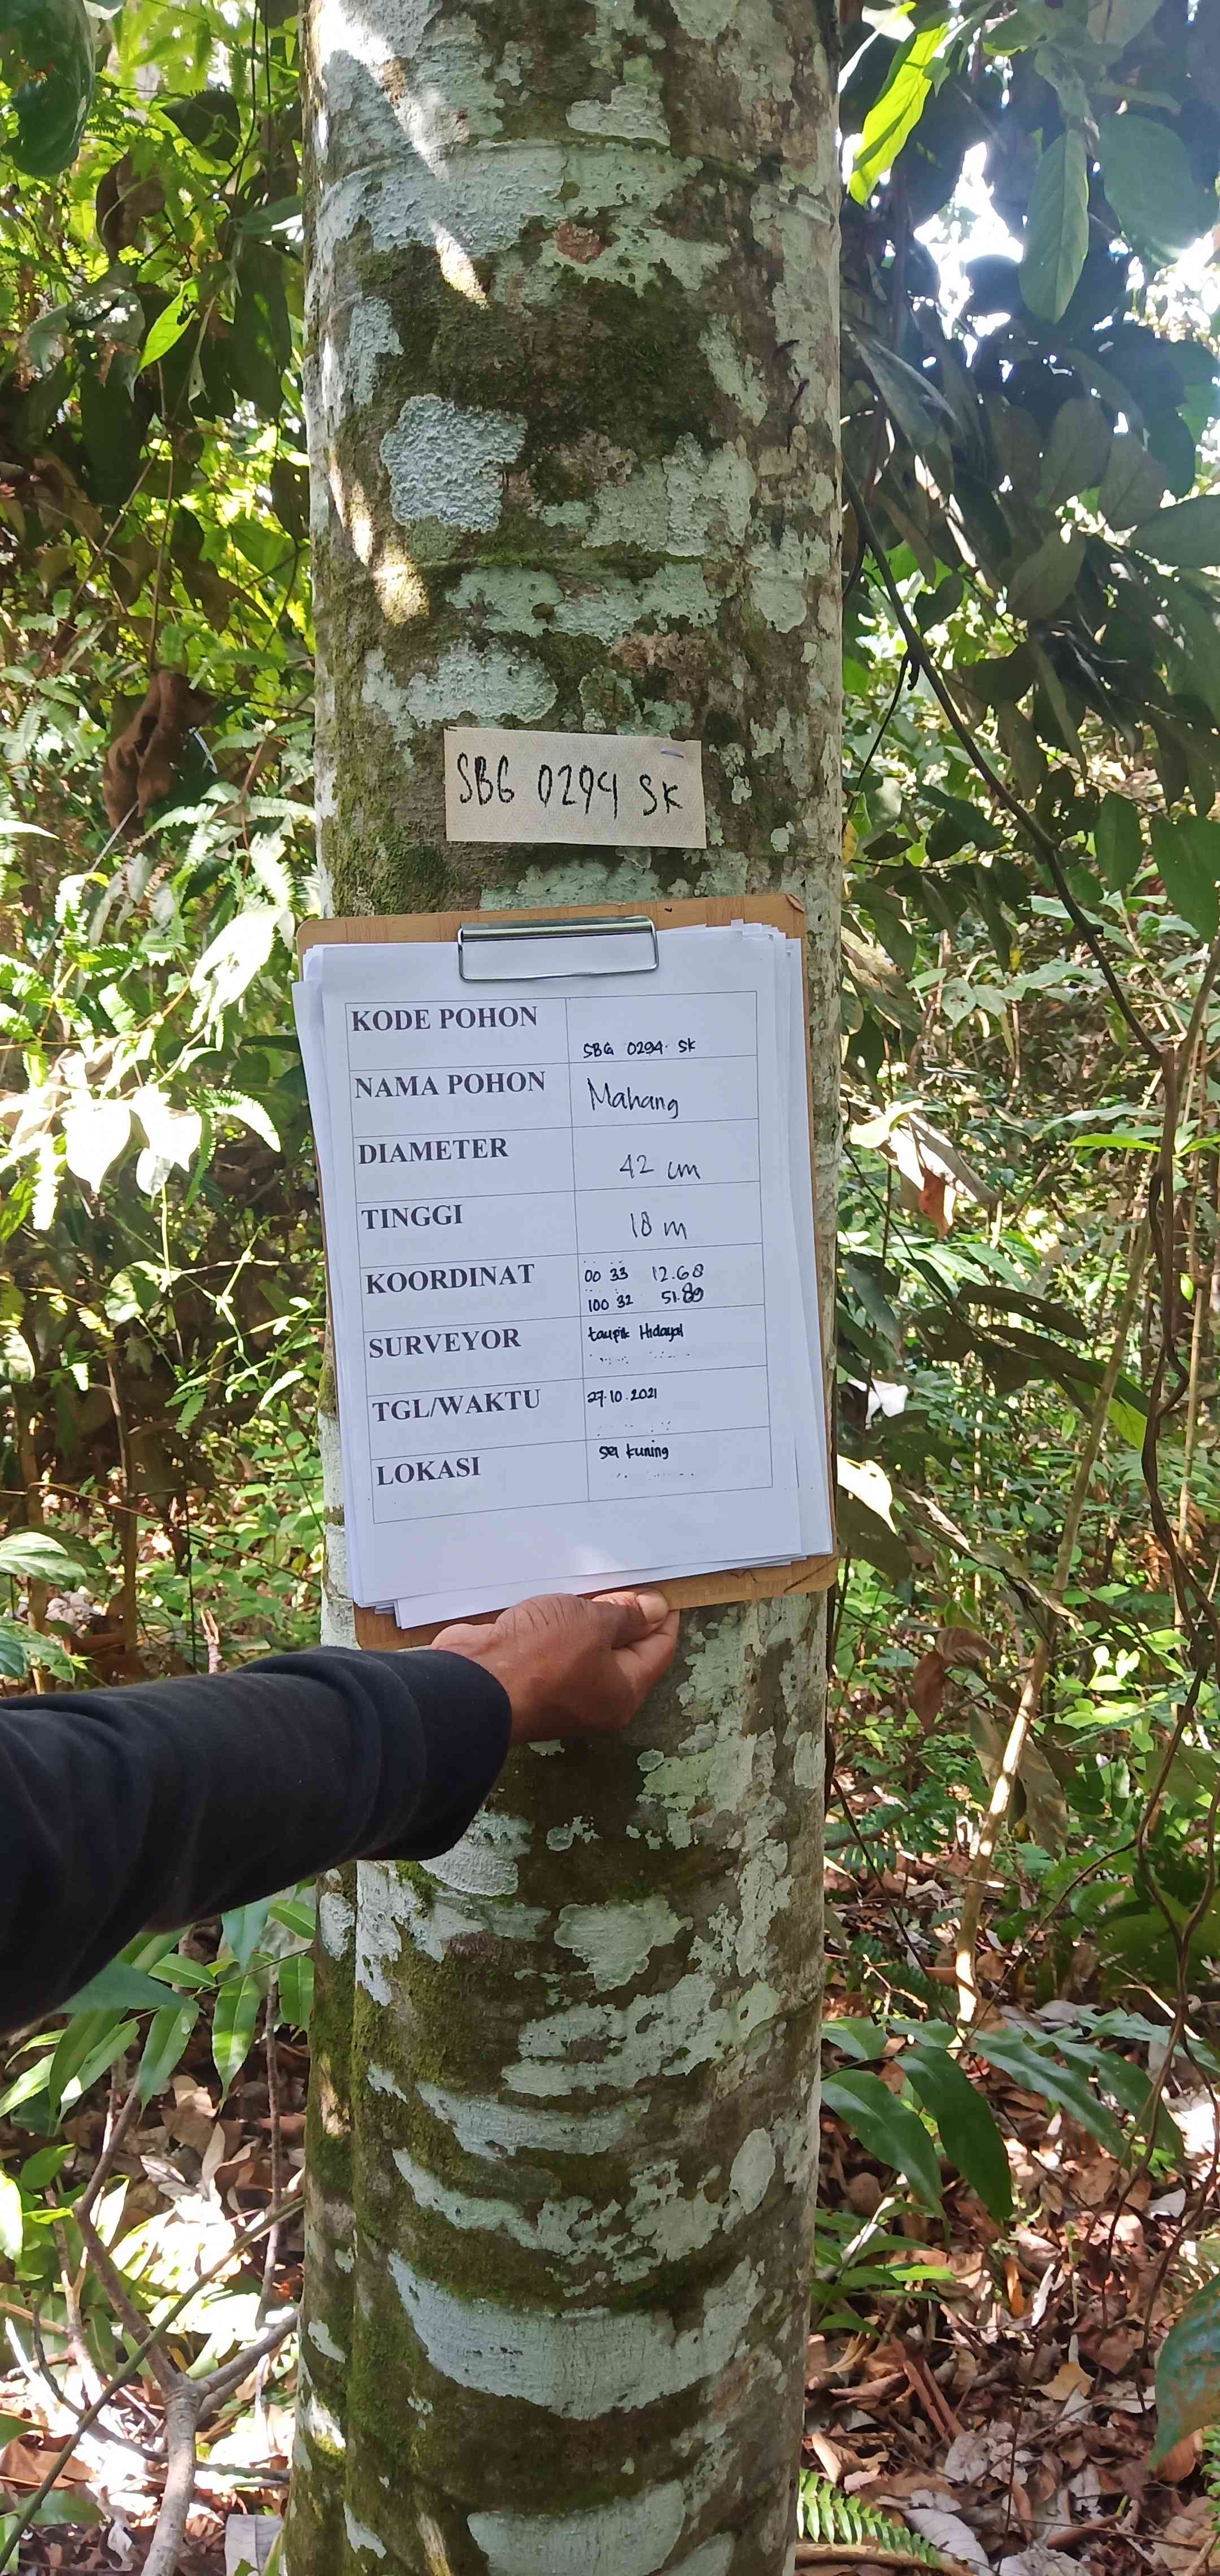 SBG 0294 SK
KODE POHON SBG 0294 SK
NAMA POHON Mahang
DIAMETER 42 cm
TINGGI 18 m
KOORDINAT 00 33 12.68
100 32 51.89
SURVEYOR taupik Hidayat
TGL/WAKTU 27.10.2021
LOKASI sei kuning